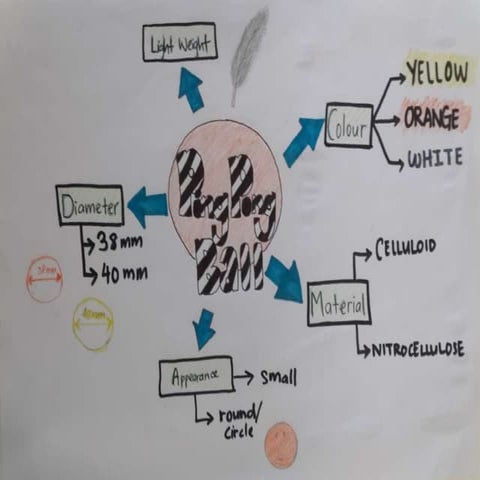 Light Weight
Colour
YELLOW
ORANGE
WHITE
Ping Pong
Ball
Diameter
38mm
40mm
38mm
40mm
Material
CELLULOID
NITROCELLULOSE
Appearance
small
round/
circle